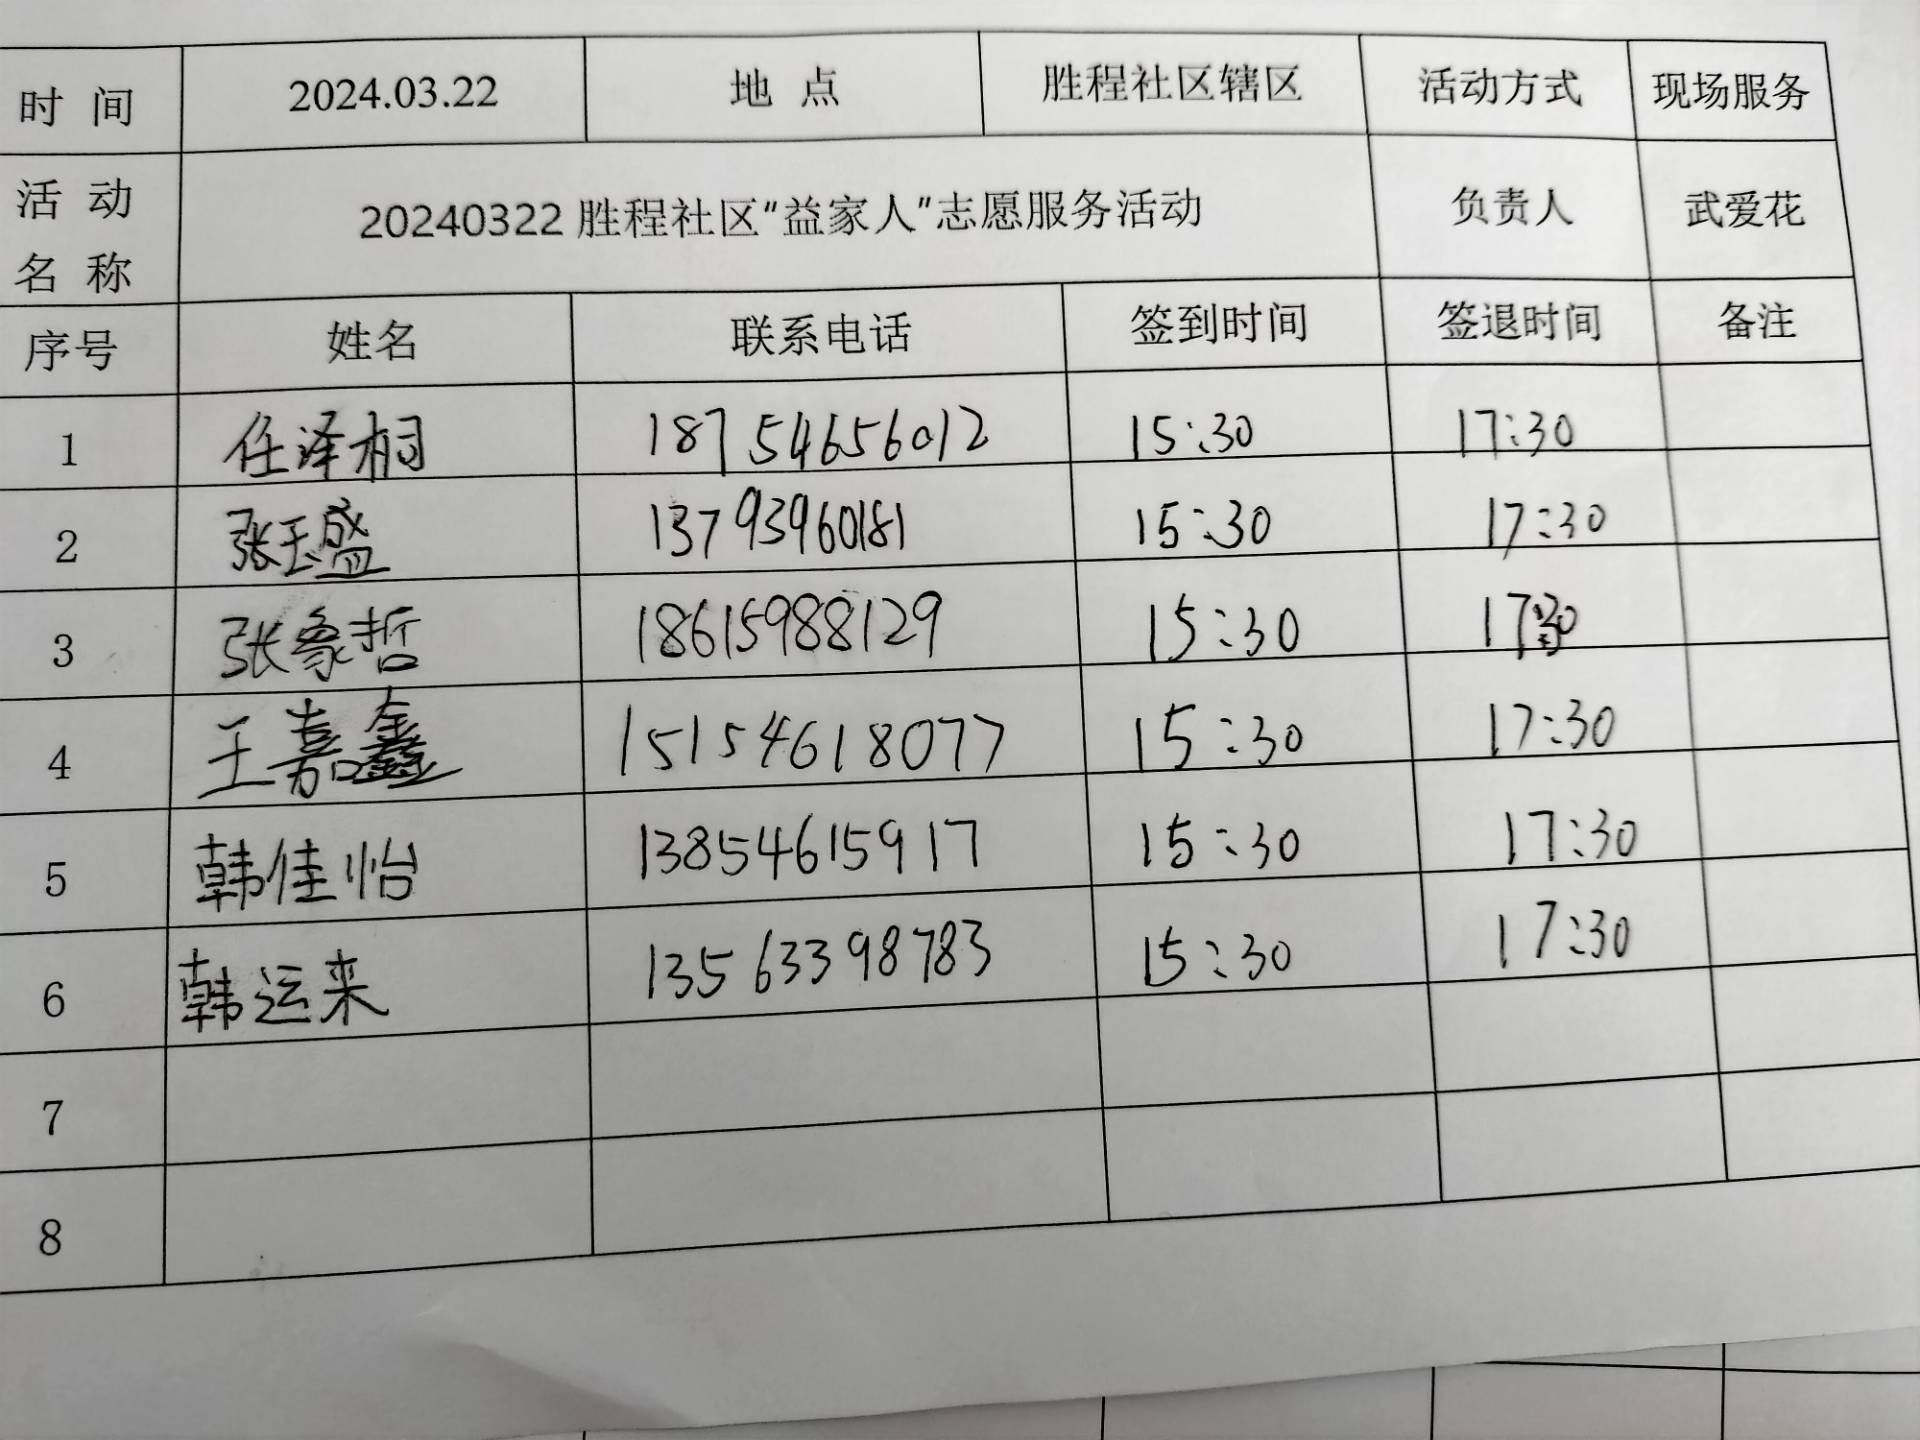 时 间 2024.03.22 地 点 胜程社区辖区 活动方式 现场服务
活 动
名 称 20240322 胜程社区“益家人”志愿服务活动 负责人 武爱花
序号 姓名 联系电话 签到时间 签退时间 备注
1 任泽桐 18754656012 15:30 17:30
2 张玉盛 13793960181 15:30 17:30
3 张象哲 18615988129 15:30 17:30
4 王嘉鑫 15154618077 15:30 17:30
5 韩佳怡 13854615917 15:30 17:30
6 韩运来 13563398783 15:30 17:30
7
8